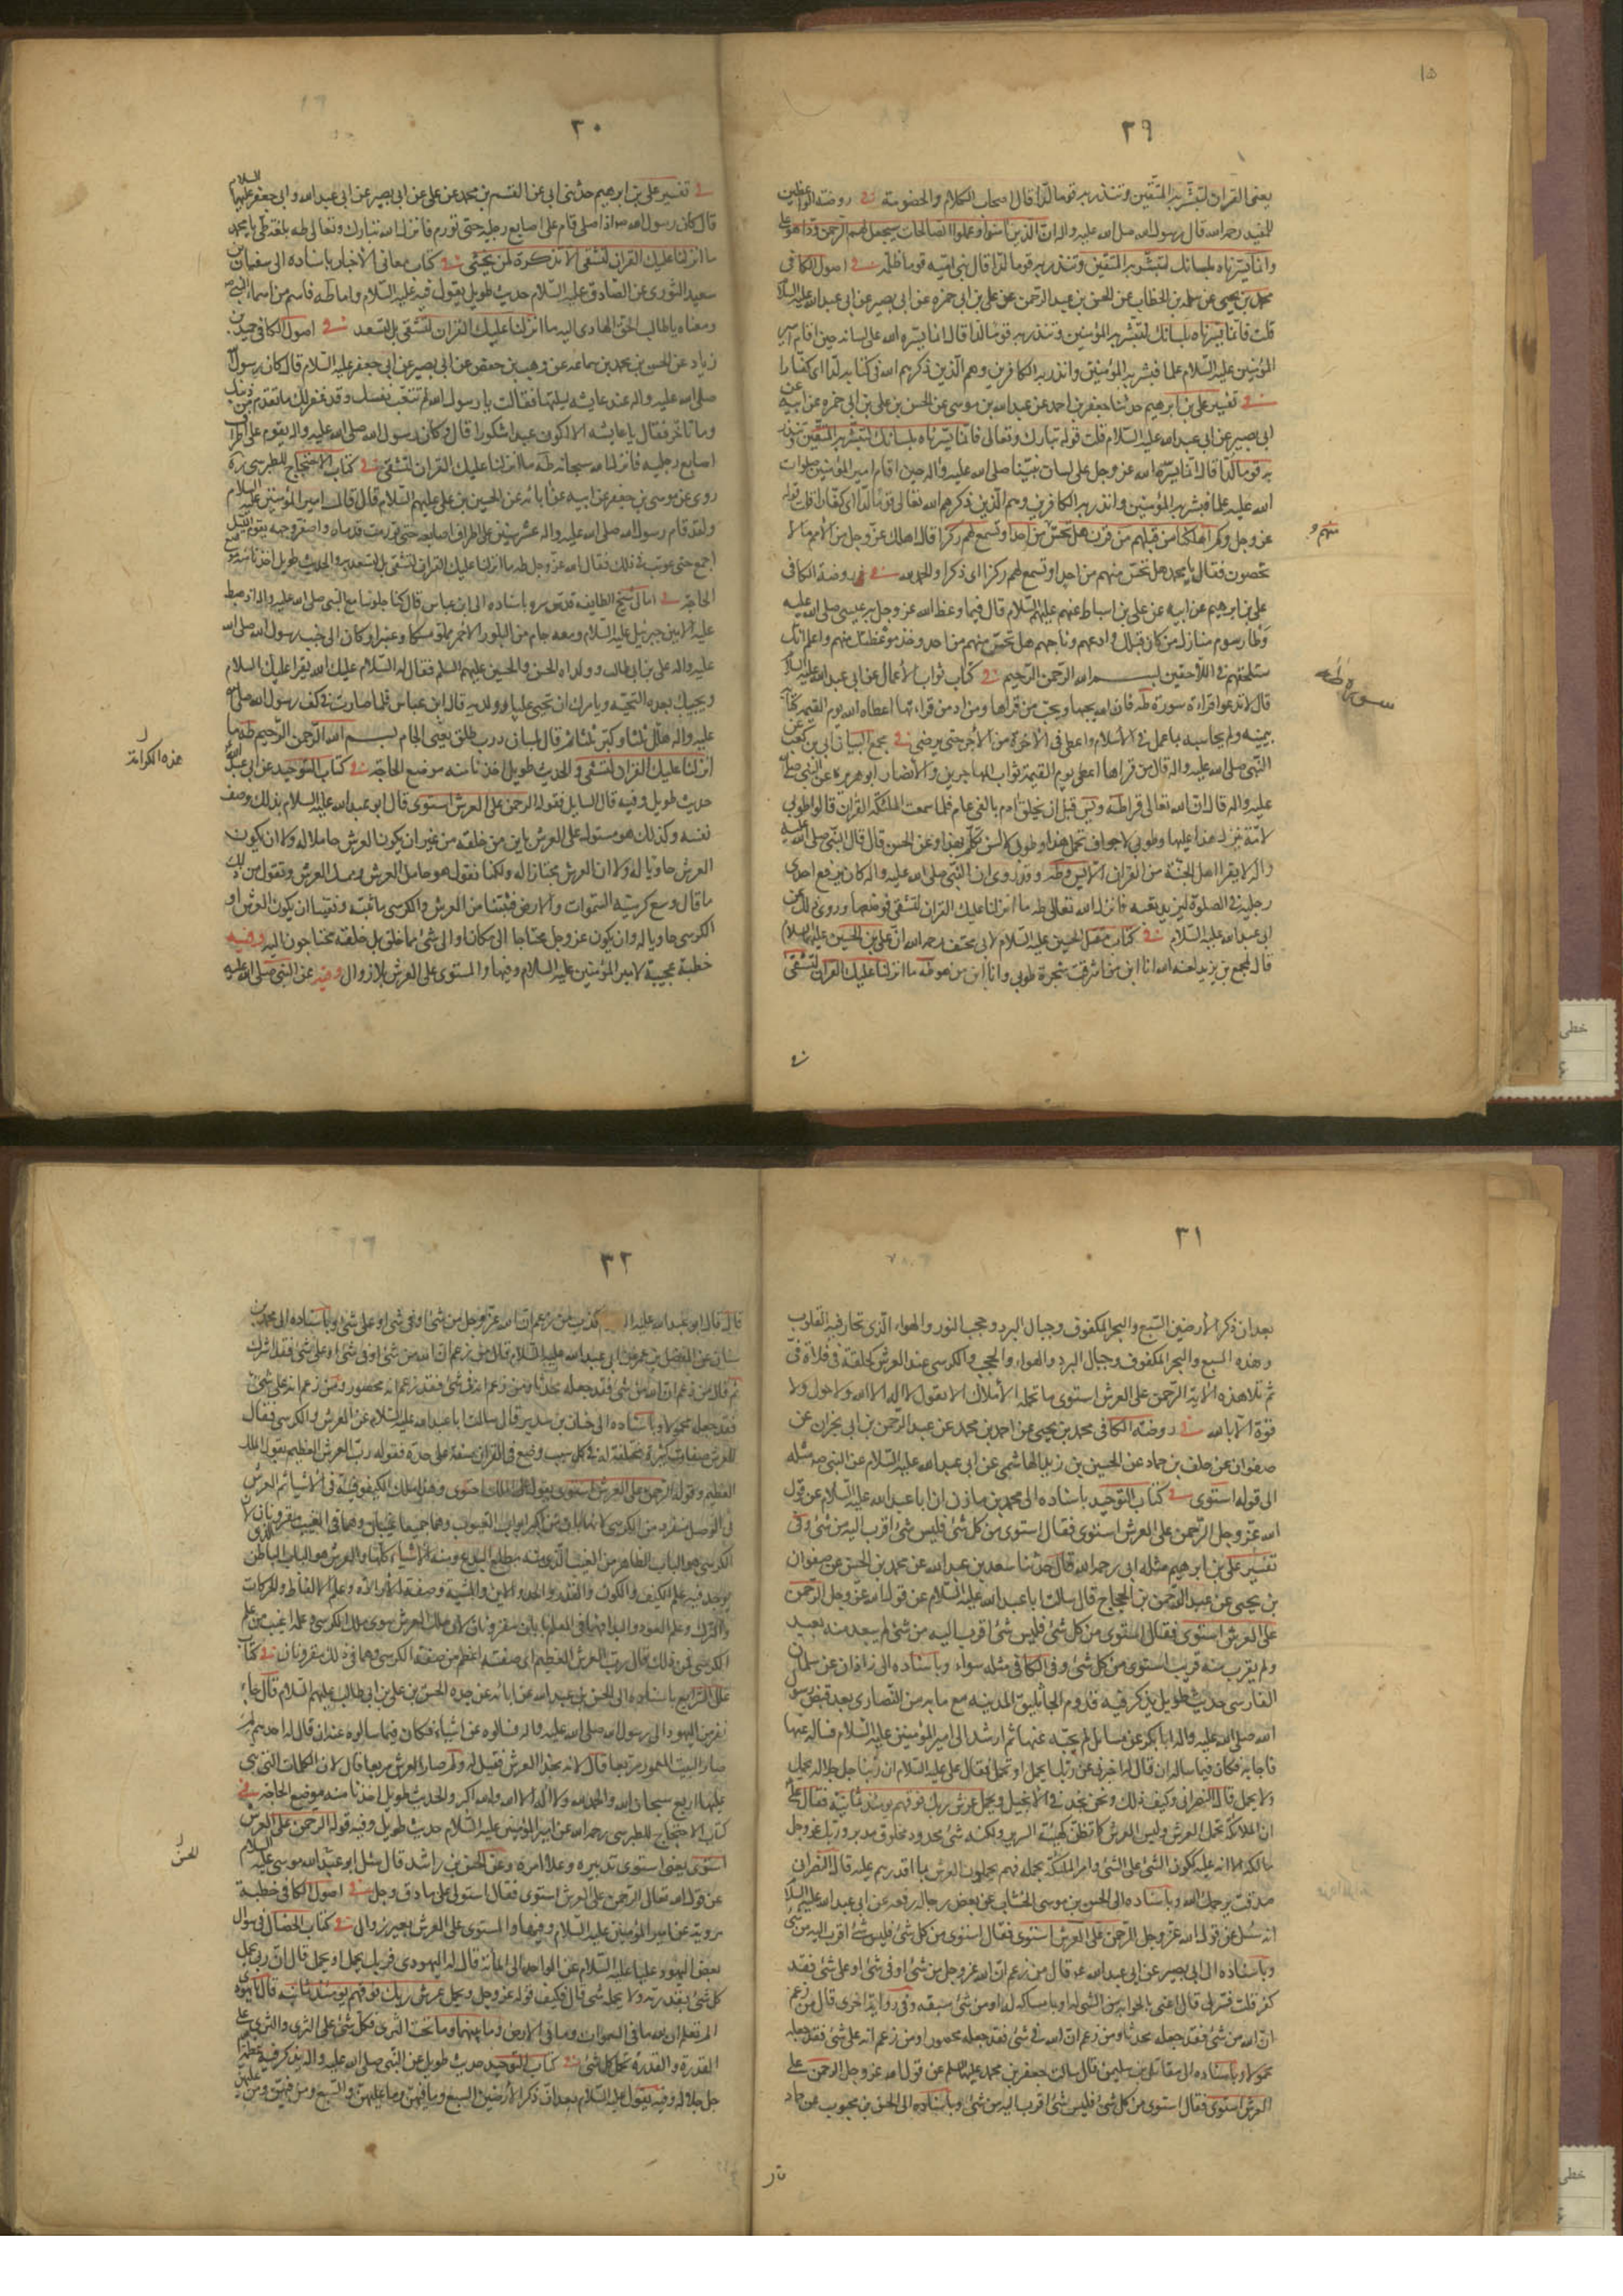 ١٥
٢٩
يعنى القران لتبشر به المتقين وتنذر به قوما لدا قال اصحاب الكلام والخصومة في روضة الواعظين
للمفيد رحمه الله قال رسول الله صلى الله عليه واله ان الذين امنوا وعملوا الصالحات سيجعل لهم الرحمن ودا هو على
وانما يسرناه بلسانك لتبشر به المتقين وتنذر به قوما لدا قال بنى اميه قوما ظلمه في اصول الكافى
محمد بن يحيى عن سلمه بن الخطاب عن الحسن بن عبد الرحمن عن على بن ابى حمزه عن ابى بصير عن ابى عبد الله عليه السلام
قلت فانما يسرناه بلسانك لتبشر به المؤمنين وتنذر به قوما لدا قال انما يسره الله على لسانه حين اقام امير
المؤمنين عليه السلام علما فبشر به المؤمنين وانذر به الكافرين وهم الذين ذكرهم الله فى كتابه لدا اى كفارا
في تفسير على بن ابرهيم حدثنا جعفر بن احمد عن عبد الله بن موسى عن الحسن بن على بن ابى حمزه عن ابيه عن
ابى بصير عن ابى عبد الله عليه السلام قلت قوله تبارك وتعالى فانما يسرناه بلسانك لتبشر به المتقين وتنذر
به قوما لدا قال انما يسره الله عز وجل على لسان نبينا صلى الله عليه واله حين اقام امير المؤمنين صلوات
الله عليه علما فبشر به المؤمنين وانذر به الكافرين وهم الذين ذكرهم الله تعالى قوما لدا اى كفارا قلت قوله
عز وجل وكم اهلكنا من قبلهم من قرن هل تحس من احد او تسمع لهم ركزا قال اهلك عز وجل من الامم ما لا
تحصون فقال يا محمد هل تحس منهم من احد او تسمع لهم ركزا اى ذكرا والحمد لله في روضة الكافى
على بن ابرهيم عن ابيه عن على بن اسباط عنهم عليهم السلام قال فيما وعظ الله عز وجل به عيسى صلى الله عليه
وطأ رسوم منازل من كان قبلك وادعهم وناجهم هل تحس منهم من احد وخذ موعظتك منهم واعلم انك
ستلحقهم فى اللاحقين بسم الله الرحمن الرحيم في كتاب ثواب الاعمال عن ابى عبد الله عليه السلام
قال لا تدعوا قراءة سورة طه فان الله يحبها ويحب من قراها ومن ادمن قراءتها اعطاه الله يوم القيمة كتابه
بيمينه ولم يحاسبه بما عمل فى الاسلام واعطى فى الاخرة من الاجر حتى يرضى في مجمع البيان ابى بن كعب عن
النبى صلى الله عليه واله قال من قراها اعطى يوم القيمة ثواب المهاجرين والانصار ابو هريره عن النبى صلى الله
عليه واله قال ان الله تعالى قرا طه ويس قبل ان يخلق ادم بالفى عام فلما سمعت الملئكة القران قالوا طوبى
لامة ينزل هذا عليها وطوبى لاجواف تحمل هذا وطوبى لالسن تكلم بهذا وعن الحسن قال قال النبى صلى الله عليه
واله لا يقرا اهل الجنة من القران الا يس وطه وقد روى ان النبى صلى الله عليه واله كان يرفع احدى
رجليه فى الصلوة ليزيد تعبه فانزل الله تعالى طه ما انزلنا عليك القران لتشقى فوضعها وروى ذلك عن
ابى عبد الله عليه السلام في كتاب مقتل الحسين عليه السلام لابى مخنف رحمه الله ان على بن الحسين عليهما السلام
قال لمجمع بن يزيد لعنه الله انا ابن من شجرة طوبى وانا ابن من هو طه ما انزلنا عليك القران لتشقى
منهم و
سورة طه
في
٣٠
في تفسير على بن ابرهيم حدثنى ابى عن القسم بن محمد عن على عن ابى بصير عن ابى عبد الله وابى جعفر عليهما السلام
قال كان رسول الله ص اذا صلى قام على اصابع رجليه حتى تورم فانزل الله تبارك وتعالى طه بلغة طى يا محمد
ما انزلنا عليك القران لتشقى الا تذكرة لمن يخشى في كتاب معانى الاخبار باسناده الى سفيان بن
سعيد الثورى عن الصادق عليه السلام حديث طويل يقول فيه عليه السلام واما طه فاسم من اسماء النبى ص
ومعناه يا طالب الحق الهادى اليه ما انزلنا عليك القران لتشقى بل لتسعد في اصول الكافى حميد بن
زياد عن الحسن بن محمد بن سماعه عن وهيب بن حفص عن ابى بصير عن ابى جعفر عليه السلام قال كان رسول الله
صلى الله عليه واله عند عايشه ليلتها فقالت يا رسول الله لم تتعب نفسك وقد غفر لك ما تقدم من ذنبك
وما تأخر فقال يا عايشه الا اكون عبدا شكورا قال وكان رسول الله صلى الله عليه واله يقوم على اطراف
اصابع رجليه فانزل الله سبحانه طه ما انزلنا عليك القران لتشقى في كتاب الاحتجاج للطبرسى ره
روى عن موسى بن جعفر عن ابيه عن ابائه عن الحسين بن على عليهم السلام قال قال امير المؤمنين عليه السلام
ولقد قام رسول الله صلى الله عليه واله عشر سنين على اطراف اصابعه حتى تورمت قدماه واصفر وجهه يقوم الليل
اجمع حتى عوتب فى ذلك فقال الله عز وجل طه ما انزلنا عليك القران لتشقى بل لتسعد به والحديث طويل اخذنا منه موضع
الحاجة في امالى شيخ الطايفه قدس سره باسناده الى ابن عباس قال كنا جلوسا مع النبى صلى الله عليه واله اذ هبط
عليه الامين جبرئيل عليه السلام ومعه جام من البلور الاحمر مملو مسكا وعنبرا وكان الى جنب رسول الله صلى الله
عليه واله على بن ابى طالب وولداه الحسن والحسين عليهم السلم فقال له السلام عليك الله يقرا عليك السلام
ويحييك بهذه التحية ويامرك ان تحيى عليا وولديه قال ابن عباس فلما صارت فى كف رسول الله صلى الله
عليه واله هلل ثلثا وكبر ثلثا ثم قال بلسان ذرب طلق يعنى الجام بسم الله الرحمن الرحيم طه ما
انزلنا عليك القران لتشقى والحديث طويل اخذنا منه موضع الحاجة في كتاب التوحيد عن ابى عبد الله
حديث طويل وفيه قال السايل فقوله الرحمن على العرش استوى قال ابو عبد الله عليه السلام بذلك وصف
نفسه وكذلك هو مستول على العرش باين من خلقه من غير ان يكون العرش حاملا له ولا ان يكون
العرش حاويا له ولا ان العرش محتازا له ولكنا نقول هو حامل العرش وممسك العرش ونقول من ذلك
ما قال وسع كرسيه السموات والارض فثبتنا من العرش والكرسى ما ثبته ونفينا ان يكون العرش او
الكرسى حاويا له وان يكون عز وجل محتاجا الى مكان او الى شىء مما خلق بل خلقه محتاجون اليه وفيه
خطبة عجيبة لامير المؤمنين عليه السلام وفيها والمستوى على العرش بلا زوال وفيه عن النبى صلى الله عليه و
هذه الكرامة
٣١
بعد ان ذكر الارضين السبع والبحر المكفوف وجبال البرد وحجب النور والهواء الذى تحار فيه القلوب
وهذه السبع والبحر المكفوف وجبال البرد والهواء والحجب والكرسى عند العرش كحلقة فى فلاة قى
ثم تلا هذه الاية الرحمن على العرش استوى ما تحمله الاملاك الا بقول لا اله الا الله ولا حول ولا
قوة الا بالله في روضة الكافى محمد بن يحيى عن احمد بن محمد عن عبد الرحمن بن ابى نجران عن
صفوان عن خلف بن حماد عن الحسين بن زيد الهاشمى عن ابى عبد الله عليه السلام عن النبى ص مثله
الى قوله استوى في كتاب التوحيد باسناده الى محمد بن مازن ان ابا عبد الله عليه السلام عن قول
الله عز وجل الرحمن على العرش استوى فقال استوى من كل شىء فليس شىء اقرب اليه من شىء وفى
تفسير على بن ابرهيم مثله ابى رحمه الله قال حدثنا سعد بن عبد الله عن محمد بن الحسن عن صفوان
بن يحيى عن عبد الرحمن بن الحجاج قال سالت ابا عبد الله عليه السلام عن قول الله عز وجل الرحمن
على العرش استوى فقال استوى من كل شىء فليس شىء اقرب اليه من شىء لم يبعد منه بعيد
ولم يقرب منه قريب استوى من كل شىء وفى الكافى مثله سواء وباسناده الى زاذان عن سلمان
الفارسى حديث طويل يذكر فيه قدوم الجاثليق المدينه مع مايه من النصارى بعد قبض رسول
الله صلى الله عليه واله ابا بكر عن مسايل لم يجبه عنها ثم ارشد الى امير المؤمنين عليه السلام فساله عنها
فاجابه فكان فيما ساله ان قال له اخبرنى عن ربك ايحمل او يحمل فقال على عليه السلام ان ربنا جل جلاله يحمل
ولا يحمل قال النصرانى وكيف ذلك ونحن نجد فى الانجيل ويحمل عرش ربك فوقهم يومئذ ثمانية فقال على
ان الملائكة تحمل العرش وليس العرش كما تظن كهيئة السرير ولكنه شىء محدود مخلوق مدبر وربك عز وجل
مالكه لا انه عليه ككون الشىء على الشىء وامر الملئكة بحمله فهم يحملون العرش بما اقدرهم عليه قال النصرانى
صدقت يرحمك الله وباسناده الى الحسن بن موسى الخشاب عن بعض رجاله رفعه عن ابى عبد الله عليه السلام
انه سئل عن قول الله عز وجل الرحمن على العرش استوى فقال استوى من كل شىء فليس شىء اقرب اليه من شىء
وباسناده الى ابى بصير عن ابى عبد الله عم قال من زعم ان الله عز وجل من شىء او فى شىء او على شىء فقد
كفر قلت فسر لى قال اعنى بالحوايه من الشىء له او بامساك له او من شىء سبقه وفى رواية اخرى قال من زعم
ان الله من شىء فقد جعله محدثا ومن زعم ان الله فى شىء فقد جعله محصورا ومن زعم انه على شىء فقد جعله
محمولا وباسناده الى مقاتل بن سليمن قال سالت جعفر بن محمد عليهما السلم عن قول الله عز وجل الرحمن على
العرش استوى فقال استوى من كل شىء فليس شىء اقرب اليه من شىء وباسناده الى الحسن بن محبوب عن حماد
قال
٣٢
قال قال ابو عبد الله عليه كذب من زعم ان الله عز وجل من شىء او فى شىء او على شىء وباسناده الى محمد بن
سنان عن المفضل بن عمر عن ابى عبد الله عليه السلام قال من زعم ان الله من شىء او فى شىء او على شىء فقد اشرك
ثم قال من زعم ان الله من شىء فقد جعله محدثا ومن زعم انه فى شىء فقد زعم انه محصور ومن زعم انه على شىء
فقد جعله محمولا وباسناده الى حنان بن سدير قال سالت ابا عبد الله عليه السلام عن العرش والكرسى فقال
للعرش صفات كثيرة مختلفة له فى كل سبب وضع فى القران صفة على حدة فقوله رب العرش العظيم يقول الملك
العظيم وقوله الرحمن على العرش استوى يقول على الملك احتوى وهذا ملك الكيفوفية فى الاشياء ثم العرش
فى الوصل متفرد من الكرسى لانهما بابان من اكبر ابواب الغيوب وهما جميعا غيبان وهما فى الغيب مقرونان لان
الكرسى هو الباب الظاهر من الغيب الذى منه مطلع البدع ومنه الاشياء كلها والعرش هو الباب الباطن الذى
يوجد فيه علم الكيف والكون والقدر والحد والاين والمشية وصفة الارادة وعلم الالفاظ والحركات
والترك وعلم العود والبداء فهما فى العلم بابان مقرونان لان ملك العرش سوى ملك الكرسى وعلمه اغيب من علم
الكرسى فمن ذلك قال رب العرش العظيم اى صفته اعظم من صفة الكرسى وهما فى ذلك مقرونان في كتاب
علل الشرايع باسناده الى الحسن بن عبد الله عن ابائه عن جده الحسن بن على بن ابى طالب عليهم السلام قال جاء
نفر من اليهود الى رسول الله صلى الله عليه واله فسالوه عن اشياء فكان فيما سالوه عنه ان قال له احدهم لم
صار البيت المعمور مربعا قال لانه بحذا العرش فقيل له ولم صار العرش مربعا قال لان الكلمات التى بنى
عليها اربع سبحان الله والحمد لله ولا اله الا الله والله اكبر والحديث طويل اخذنا منه موضع الحاجة في
كتاب الاحتجاج للطبرسى رحمه الله عن امير المؤمنين عليه السلام حديث طويل وفيه قوله الرحمن على العرش
استوى يعنى استوى تدبيره وعلا امره وعن الحسن بن راشد قال سئل ابو الحسن موسى عليه السلام
عن قول الله تعالى الرحمن على العرش استوى فقال استولى على ما دق وجل في اصول الكافى خطبة
مروية عن امير المؤمنين عليه السلام وفيها والمستوى على العرش بغير زوال في كتاب الخصال فى سؤال
بعض اليهود عليا عليه السلام عن الواحد الى المائة قال له اليهودى فربك يحمل او يحمل قال ان ربى يحمل
كل شىء بقدرته ولا يحمله شىء قال فكيف قوله عز وجل ويحمل عرش ربك فوقهم يومئذ ثمانية قال يا يهودى
الم تعلم ان لله ما فى السموات وما فى الارض وما بينهما وما تحت الثرى فكل شىء على الثرى والثرى على
القدرة والقدرة تحمل كل شىء في كتاب التوحيد حديث طويل عن النبى صلى الله عليه واله يذكر فيه عظمة
جل جلاله وفيه يقول عليه السلام بعد ان ذكر الارضين السبع وما فيهن وما عليهن والسبع ومن فيهن ومن
الحسن